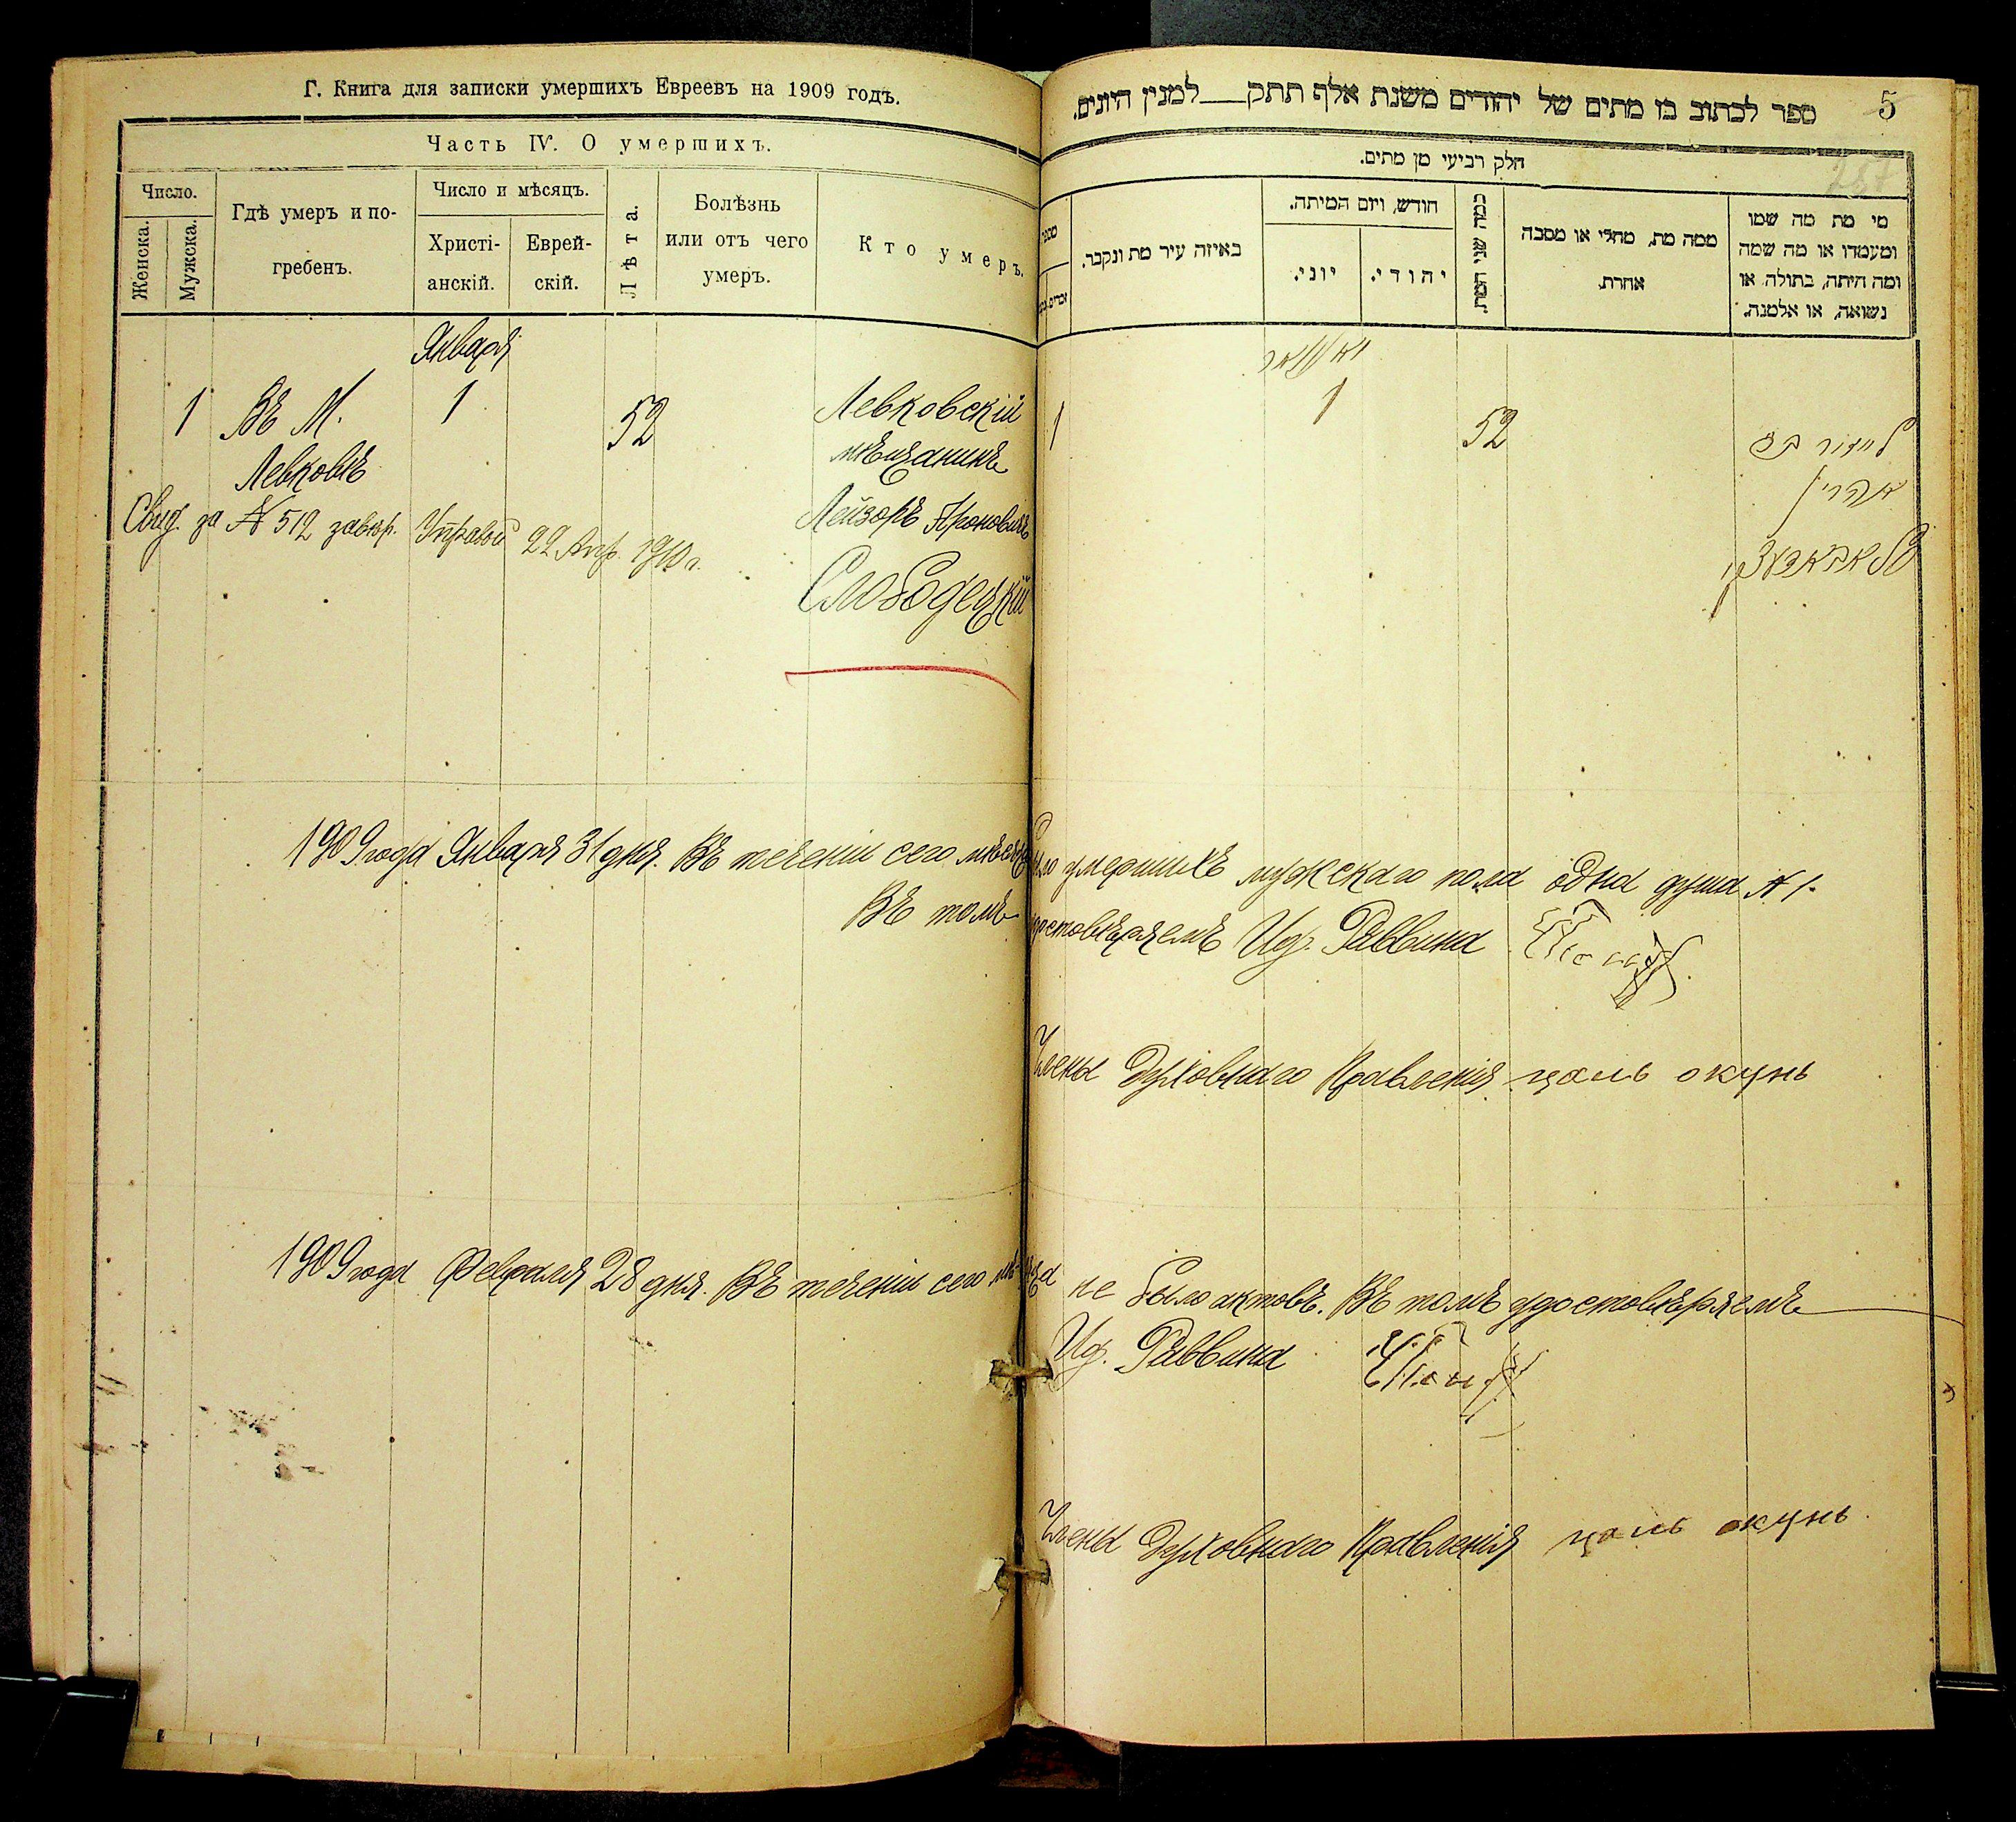 Г. Книга для записки умершихъ Евреевъ на 1909 годъ.
Часть IV. О умершихъ.
Число.
Женска.
Мужска.
Гдѣ умеръ и по-
гребенъ.
Число и мѣсяцъ.
Христі-
анскій.
Еврей-
скій.
Лѣта.
Болѣзнь
или отъ чего
умеръ.
Кто умеръ.
Января
1 Въ М. 1 52 Левковскій
Левковѣ мѣщанинъ
Свид. за № 512 завѣр. Управой 22 Апр. 1910 г.
Лейзоръ Ароновичъ
Слободецкій
5
ספר לכתוב בו מתים של יהודים משנת אלף תתק למנין היונים.
חלק רביעי מן מתים.
מי מת מה שמו
ומעמדו או מה שמה
ומה היתה, בתולה או
נשואה, או אלמנה.
ממה מת, מחלי או מסבה
אחרת.
כמה שני המת.
חודש, ויום המיתה.
יהודי.
יוני.
באיזה עיר מת ונקבר.
יאנואר
1 1 52
לייזור בם
אהרן
1909 года Января 31 дня. Въ теченіи сего мѣсяца было умершихъ мужскаго пола одна душа № 1.
Въ томъ удостовѣряемъ Ид. Раввина
Члены Духовнаго Правленія цаль окунь
1909 года Февраля 28 дня. Въ теченіи сего мѣсяца не было актовъ. Въ томъ удостовѣряемъ
Ид. Раввина
Члены Духовнаго Правленія цаль окунь